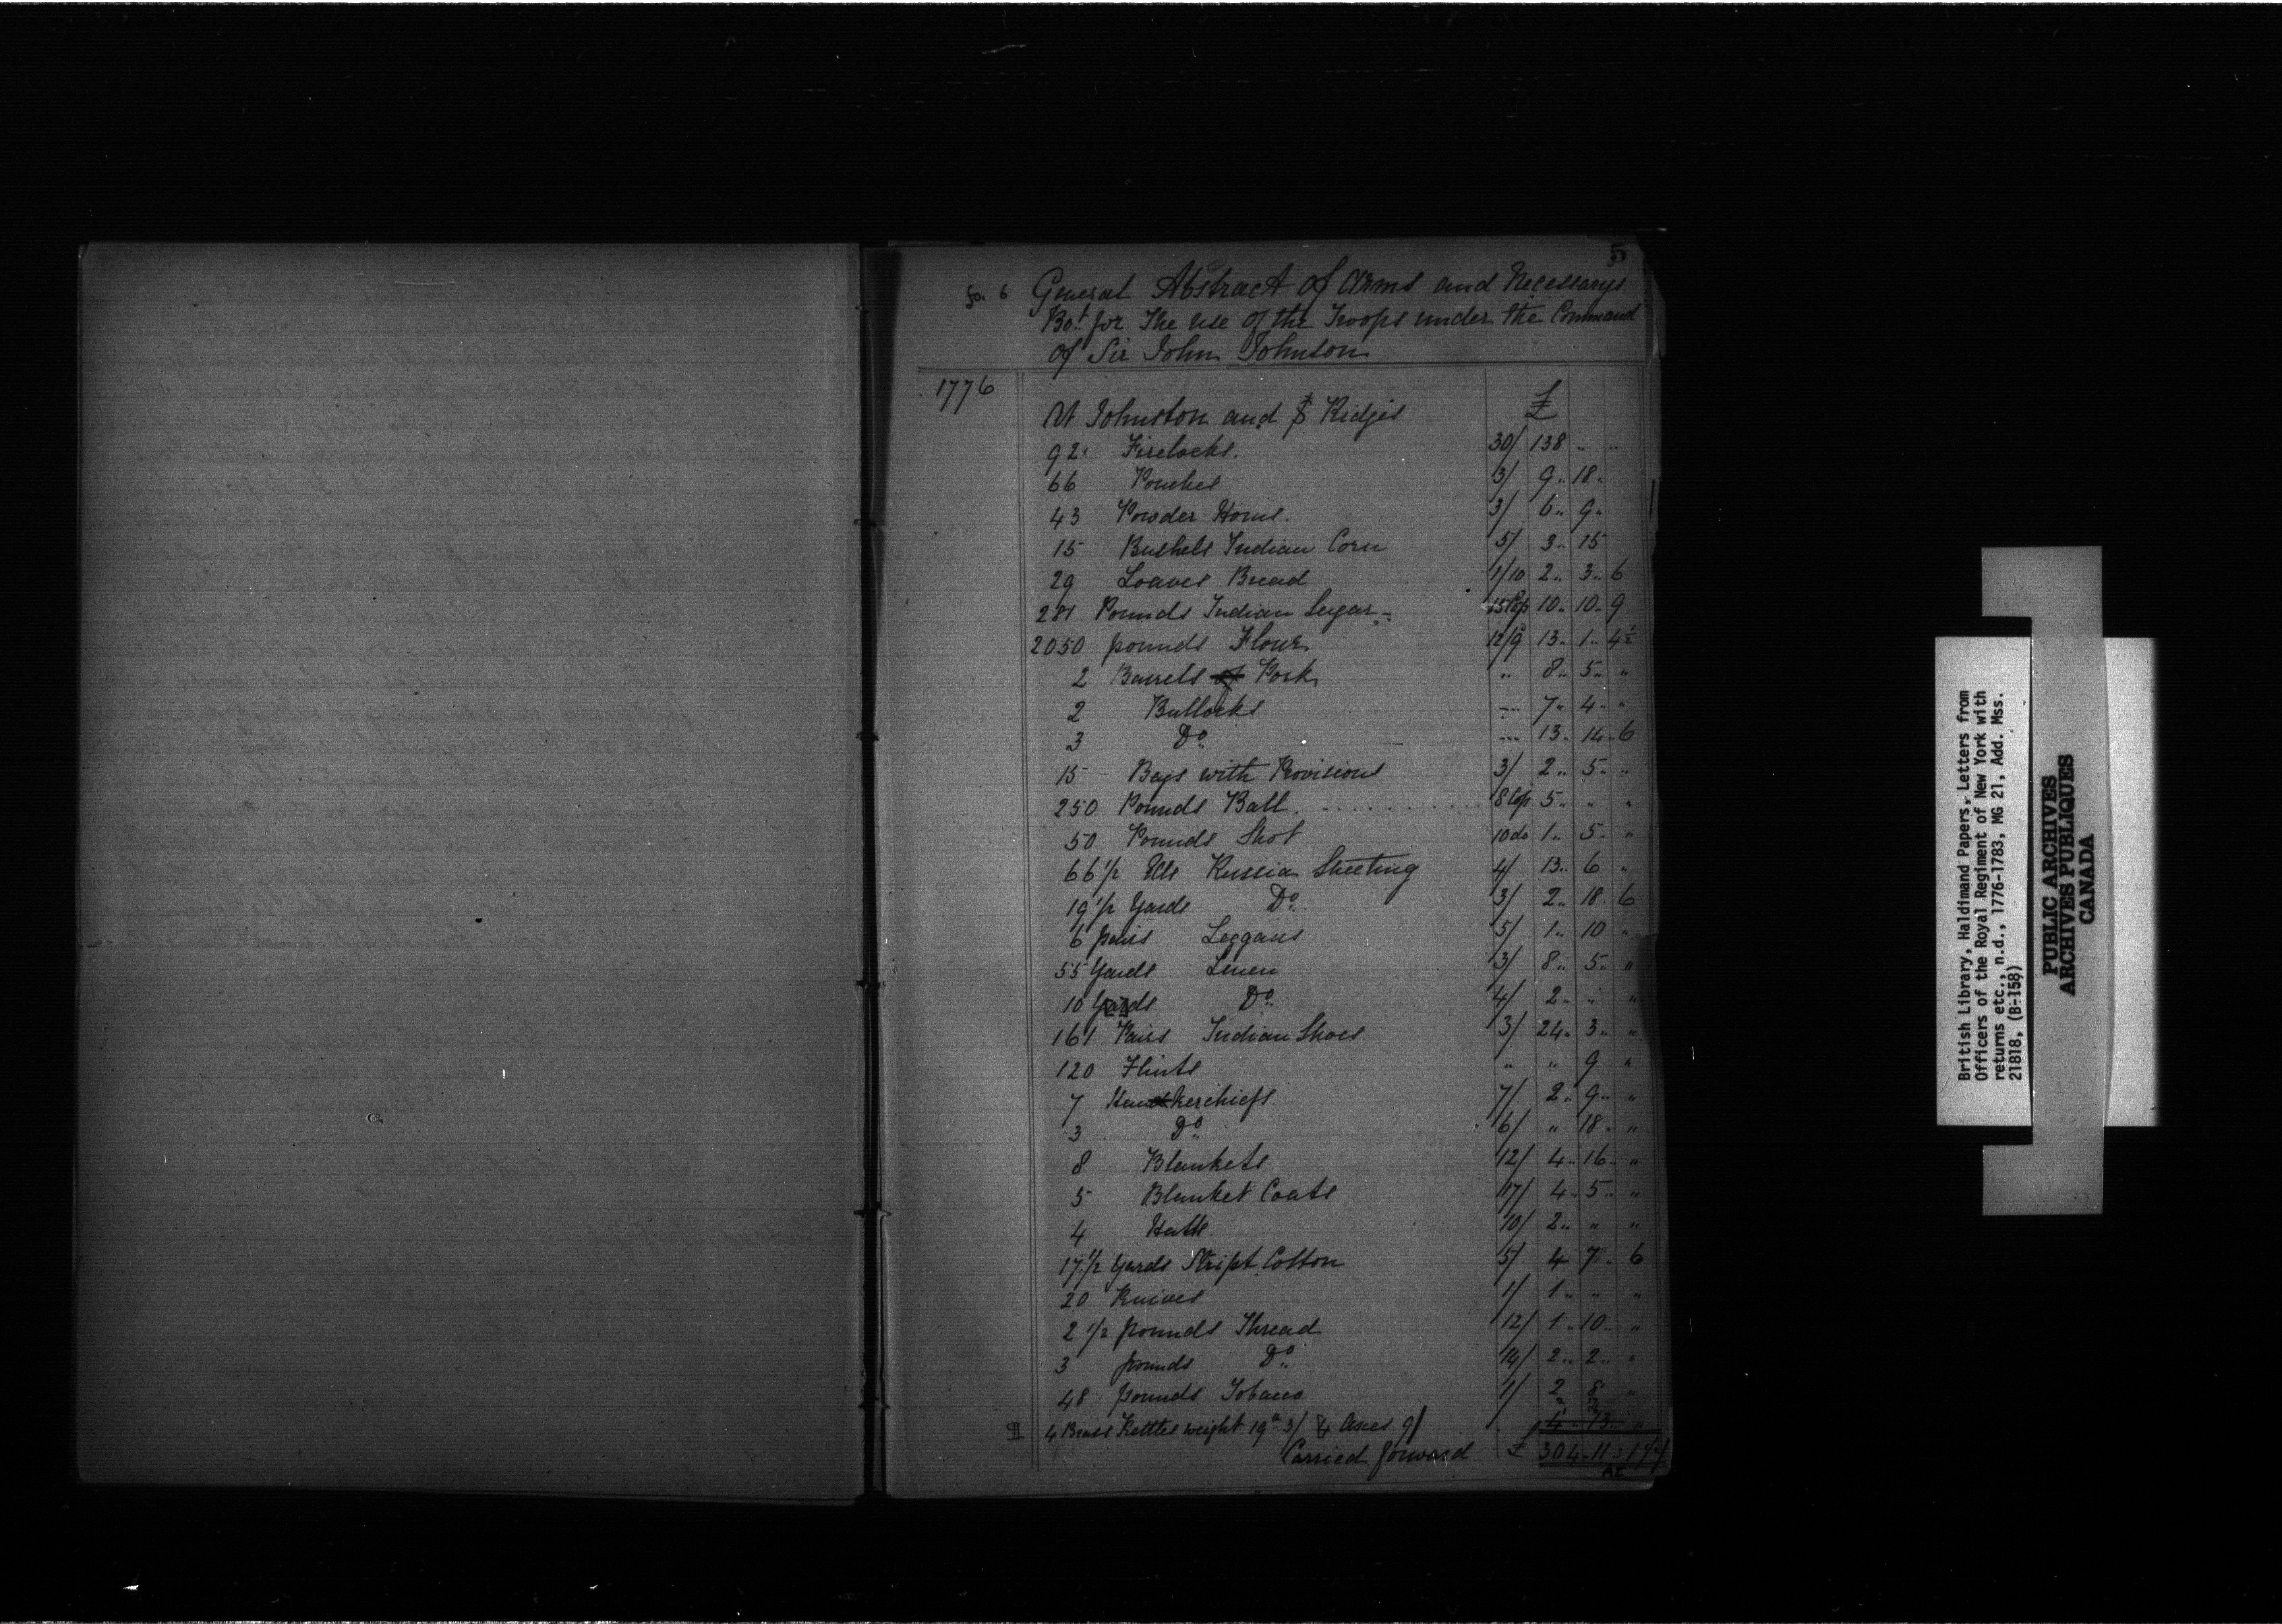 5
fo. 6 General Abstract of Arms and Necessarys
Bo.t for The use of the Troops under the Command
of Sir John Johnson
1776
£
At Johnston and St Ridgis
92 Firelocks. 30/ 138 " "
66 Pouches 3/ 9 " 18 "
43 Powder Horns. 3/ 6 " 9 "
15 Bushels Indian Corn 5/ 3 " 15
29 Loaves Bread 1/10 2 " 3 " 6
281 Pounds Indian Sugar 15 Cop 10 " 10 " 9
2050 pounds Flour 12/9 13 " 1 " 4 1/2
2 Barrels of Pork " 8 " 5 " "
2 Bullocks --- 7 " 4 " "
3 Do. --- 13 " 14 " 6
15 Bags with Provisions 3/ 2 " 5 " "
250 Pounds Ball. . . . . . . . . . . 8 Cop 5 " " "
50 Pounds Shot 10 do 1 " 5 " "
66 1/2 Ells Russia Sheeting 4/ 13 " 6 "
19 1/2 Yards Do. 3/ 2 " 18 " 6
6 pairs Leggans 5/ 1 " 10 "
55 Yards Linen 3/ 8 " 5 " "
10 Yards Do. 4/ 2 " " "
161 Pairs Indian Shoes 3/ 24 " 3 " "
120 Flints " " 9 "
7 Handkerchiefs. 7/ 2 " 9 " "
3 Do. 6/ " 18 " "
8 Blankets 12/ 4 " 16 " "
5 Blanket Coats 17/ 4 " 5 " "
4 Hatts. 10/ 2 " " "
17 1/2 Yards Stript Cotton 5/ 4 7 " 6
20 Knives 1/ 1 " " "
2 1/2 pounds Thread 12/ 1 " 10 " "
3 pounds Do. 14/ 2 " 2 " "
48 pounds Tobacco 1/ 2 8 "
4 Brass Kettles weight 19 lb 3/ 4 Axes 9/ 4 " 13 " "
Carried forward £ 304 " 11 " 1 1/2
British Library, Haldimand Papers, Letters from
Officers of the Royal Regiment of New York with
returns etc., n.d., 1776-1783, MG 21, Add. Mss.
21818, (B-158)
PUBLIC ARCHIVES
ARCHIVES PUBLIQUES
CANADA